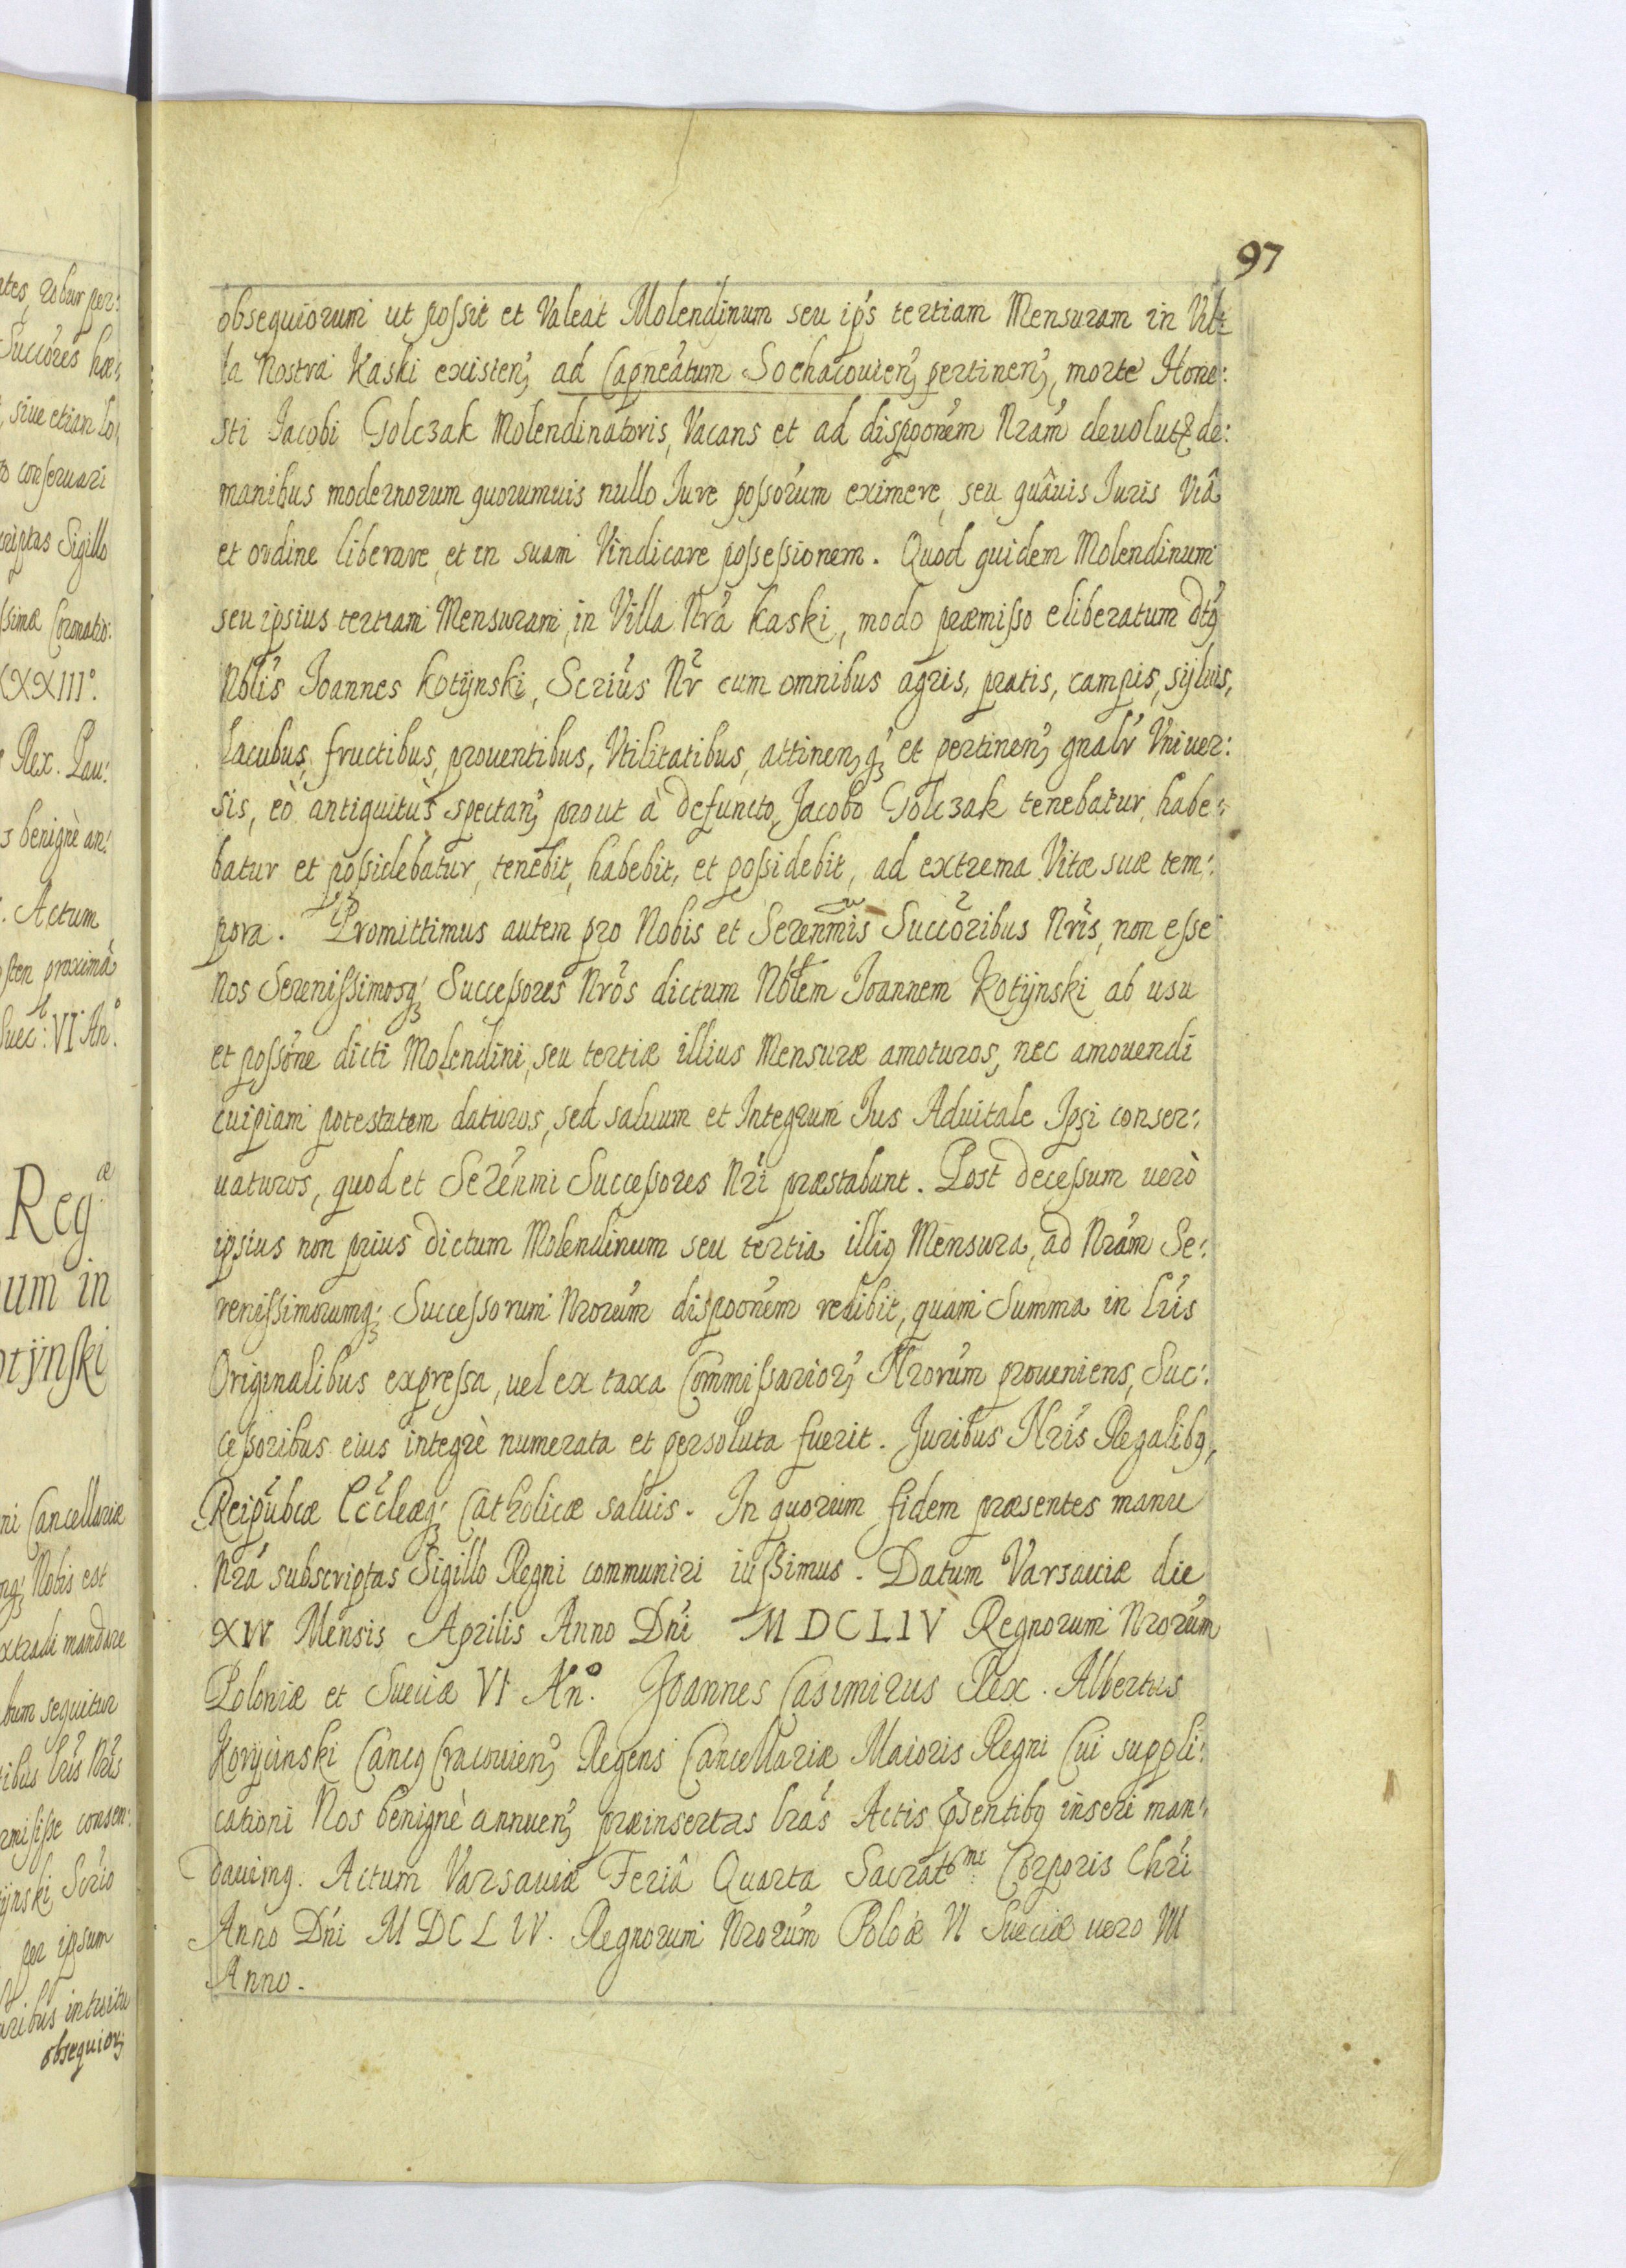 97
obsequiorum ut possit et Valeat Molendinum seu ip's tertiam Mensuram in Vil:
la Nostra Kaski existen', ad Capneátum Sochacouien', pertinen', morte Hone:
sti Jacobi Golczak Molendinatoris, Vacans et ad dispoo'nem Nra'm deuolut' de:
manibus modernorum quorumuis nullo Jure posso'rum eximere, seu quâuis Juris Viâ
et ordine liberare, et in suam Vindicare possessionem. Quod quidem Molendinum
seu ipsius tertiam Mensuram, in Villa Nrá Kaski, modo præmisso eliberatum dtq
Nblis Joannes Kotÿnski, Scrius Nr cum omnibus agris, pratis, campis, sÿluis,
lacubus, fructibus, prouentibus, Vtilitatibus, attinen,q; et pertinen', gnalr Vniuer:
sis, eò antiquitùs spectan', prout à defuncto Jacobo Golczak tenebatur, habe:
batur et possidebatur, tenebit, habebit, et possidebit, ad extrema Vitæ suæ tem:
pora. Promittimus autem pro Nobis et Serenmis Succoribus Nris, non esse
Nos Serenissimosq; Successores Nros dictum Nblem Joannem Kotÿnski ab usu
et possone dicti Molendini, seu tertiæ illius Mensuræ amoturos, nec amouendi
cuipiam potestatem daturos, sed saluum et Integrum Jus Aduitale Ipsi conser:
uaturos, quod et Serénmi Successores Nri præstabunt. Post decessum uerò
ipsius non prius dictum Molendinum seu tertia illiq Mensura, ad Nrám Se:
renissimorumq; Successorum Nrorúm dispooném redibit, quam Summa in Lris
Originalibus expressa, uel ex taxa Commissarior', Nrorúm proueniens, Suc:
cessoribus eius integrè numerata et persoluta fuerit. Juribus Nris Regalibq,
Reipubcæ Eccleæq; Catholicæ saluis. In quorum fidem præsentes manu
Nrá subscriptas Sigillo Regni communiri iussimus. Datum Varsauiæ die
XIV Mensis Aprilis Anno Dni MDCLIV Regnorum Nrorúm
Poloniæ et Sueciæ VI An.º Joannes Casimirus Rex. Albertus
Korÿcinski Cancq Cracouien', Regens Cancellariæ Maioris Regni Cui suppli:
cationi Nos benignè annuen', præinsertas lrás Actis pṡentibq inseri man:
dauimq. Actum Varsauiæ Feriâ Quarta Sacratmi Corporis Chri
Anno Dni MDCLIV. Regnorum Nrorúm Poloæ VI Sueciæ uero VII
Anno.